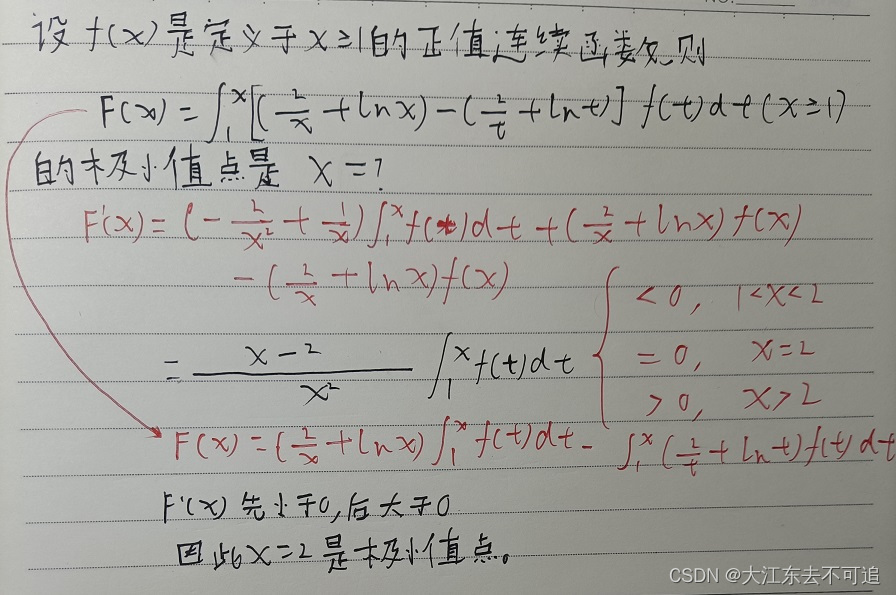 设 f(x) 是定义于 x≥1 的正值连续函数,则
F(x) = ∫₁ˣ[(2/x + lnx) - (2/t + lnt)] f(t)dt (x≥1)
的极小值点是 x = ?
F'(x) = (-2/x² + 1/x)∫₁ˣf(t)dt + (2/x + lnx)f(x)
- (2/x + lnx)f(x)
= (x-2)/x² ∫₁ˣf(t)dt { <0, 1<x<2
=0, x=2
>0, x>2
F(x) = (2/x + lnx)∫₁ˣf(t)dt - ∫₁ˣ(2/t + lnt)f(t)dt
F'(x) 先小于0,后大于0
因此 x=2 是极小值点。
CSDN @大江东去不可追